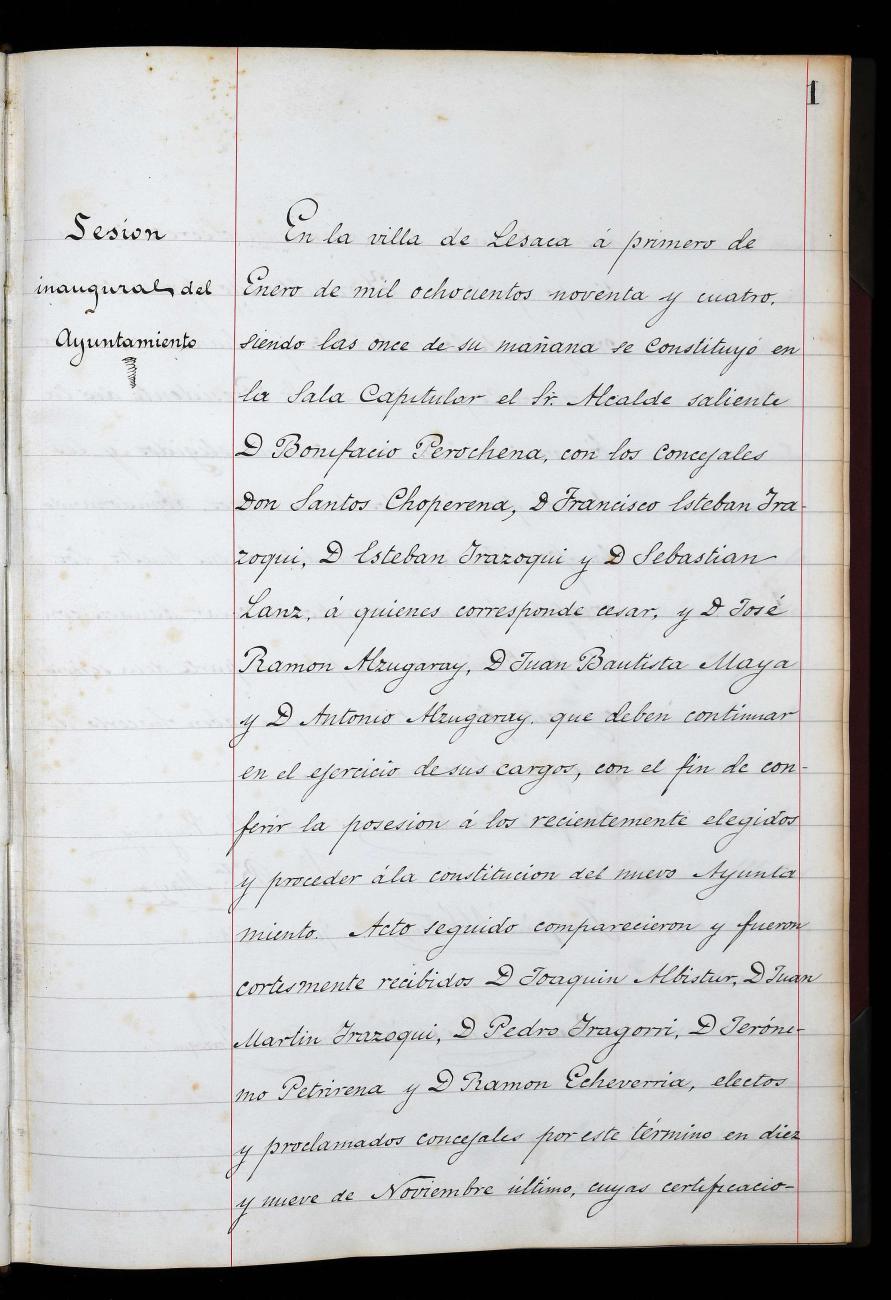 1
Sesion
inaugural del
Ayuntamiento
En la villa de Lesaca á primero de
Enero de mil ochocientos noventa y cuatro,
siendo las once de su mañana se constituyó en
la Sala Capitular el Sr. Alcalde saliente
D Bonifacio Perochena, con los concejales
Don Santos Choperena, D Francisco Esteban Ira-
zoqui, D Esteban Irazoqui y D Sebastian
Lanz, á quienes corresponde cesar, y D José
Ramon Alzugaray, D Juan Bautista Maya
y D Antonio Alzugaray, que deben continuar
en el ejercicio de sus cargos, con el fin de con-
ferir la posesion á los recientemente elegidos
y proceder ála constitucion del nuevo Ayunta
miento. Acto seguido comparecieron y fueron
cortesmente recibidos D Joaquin Albistur, D Juan
Martin Irazoqui, D Pedro Iragorri, D Jeróni-
mo Petrirena y D Ramon Echeverria, electos
y proclamados concejales por este término en diez
y nueve de Noviembre último, cuyas certificacio-